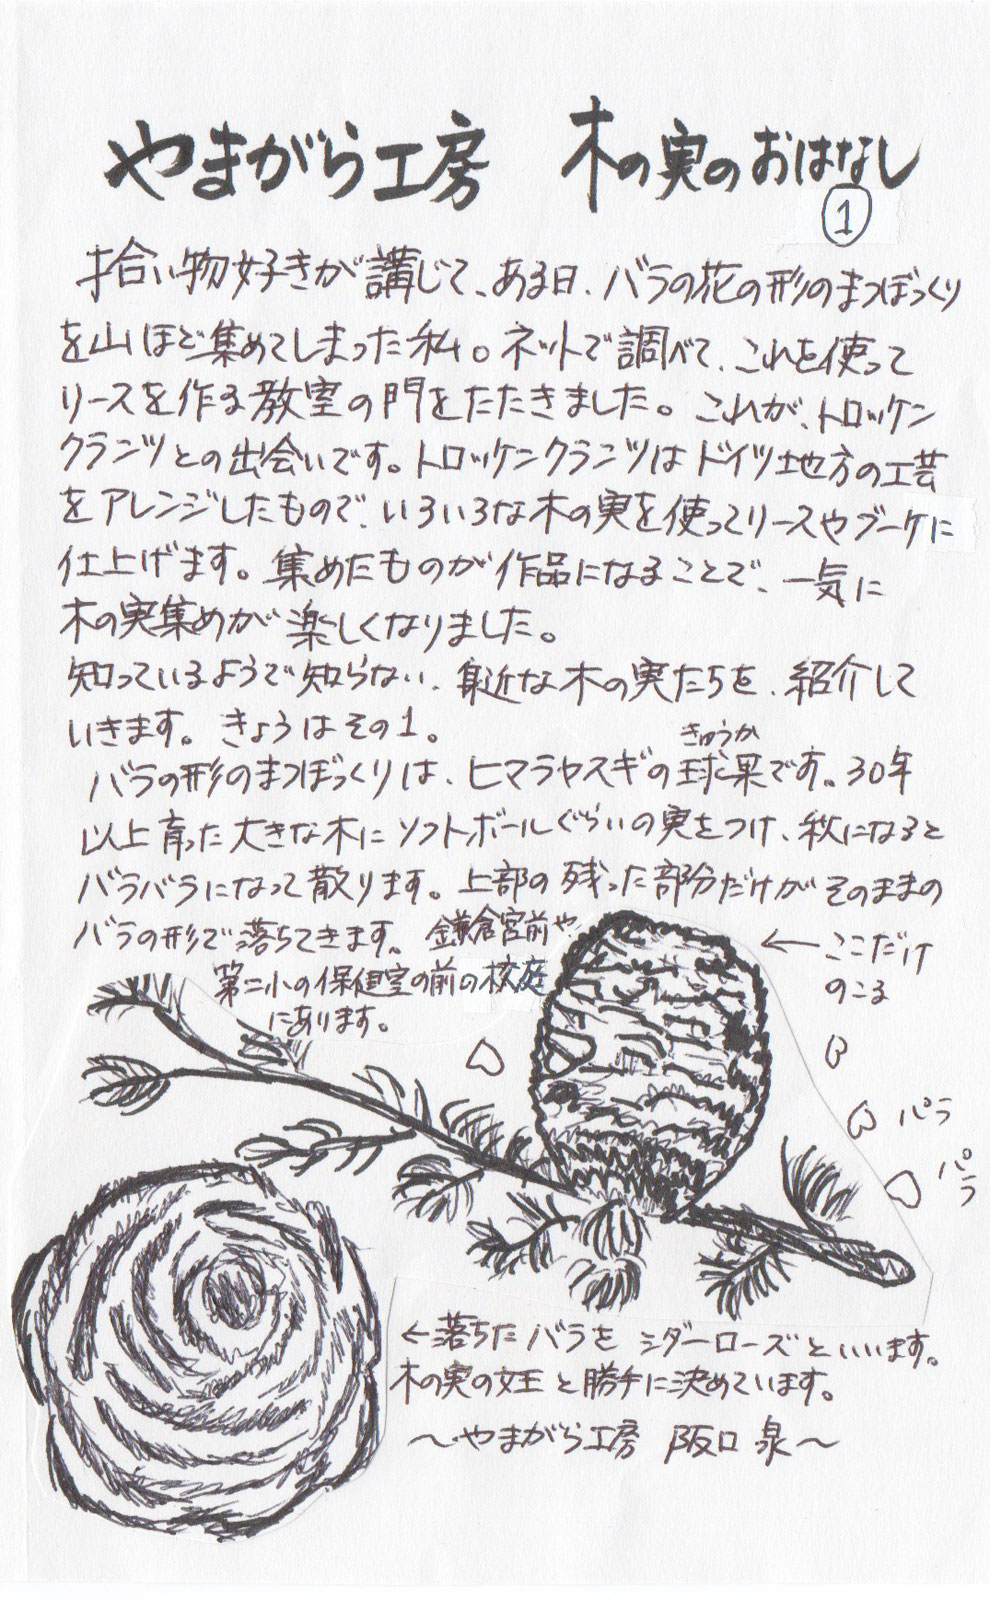 やまがら工房 木の実のおはなし
①
拾い物好きが講じて、ある日、バラの花の形のまつぼっくり
を山ほど集めてしまった私。ネットで調べて、これを使って
リースを作る教室の門をたたきました。これが、トロッケン
クランツとの出会いです。トロッケンクランツはドイツ地方の工芸
をアレンジしたもので、いろいろな木の実を使ってリースやブーケに
仕上げます。集めたものが作品になることで、一気に
木の実集めが楽しくなりました。
知っているようで知らない、身近な木の実たちを、紹介して
いきます。きょうはその1。
きゅうか
バラの形のまつぼっくりは、ヒマラヤスギの球果です。30年
以上育った大きな木にソフトボールぐらいの実をつけ、秋になると
バラバラになって散ります。上部の残った部分だけがそのままの
バラの形で落ちてきます。鎌倉宮前や
第二小の保健室の前の校庭
にあります。
←ここだけ
のこる
パラ
パラ
←落ちたバラをシダーローズといいます。
木の実の女王と勝手に決めています。
〜やまがら工房 阪口 泉〜